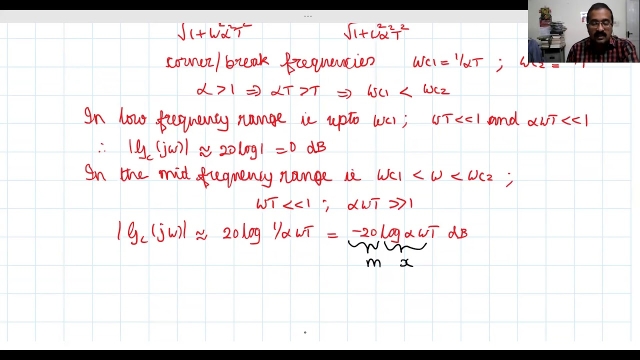 √1+ω²α²T² √1+ω²α²T²
corner/break frequencies ωc1 = 1/αT ; ωc2 =
α > 1 ⇒ αT > T ⇒ ωc1 < ωc2
In low frequency range ie upto ωc1; ωT <<1 and αωT <<1
∴ |Gc(jω)| ≈ 20 log 1 = 0 dB
In the mid frequency range ie ωc1 < ω < ωc2 ;
ωT <<1 ; αωT >>1
|Gc(jω)| ≈ 20 log 1/αωT = -20 log αωT dB
m x